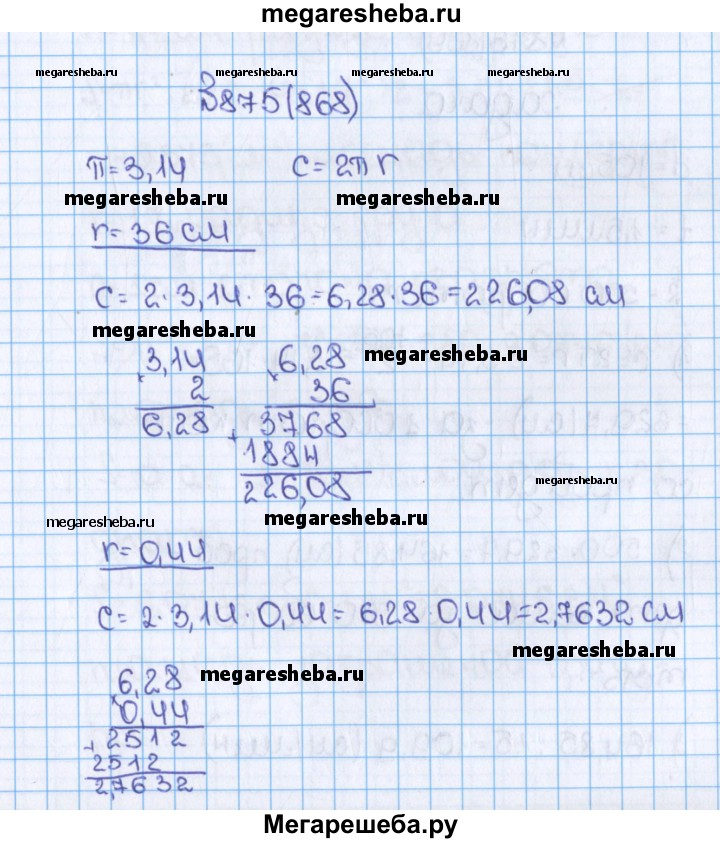 megaresheba.ru
megaresheba.ru megaresheba.ru megaresheba.ru megaresheba.ru
В875(868)
π=3,14 C=2πr
megaresheba.ru megaresheba.ru
r=36 см
C= 2·3,14·36=6,28·36=226,08 см
megaresheba.ru
3,14 6,28 megaresheba.ru
× 2 × 36
6,28 + 3768
1884
226,08 megaresheba.ru
megaresheba.ru megaresheba.ru
r=0,44
C= 2·3,14·0,44= 6,28·0,44=2,7632 см
megaresheba.ru
6,28 megaresheba.ru
× 0,44
+ 2512
2512
2,7632
Мегарешеба.ру